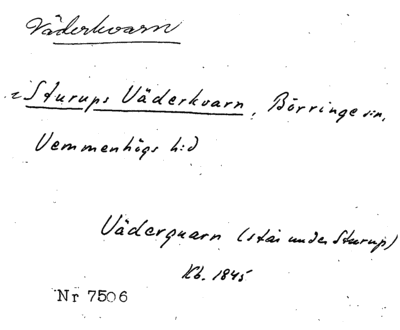 Väderkvarn
Sturups Väderkvarn, Börringe sn,
Vemmenhögs hd
Väderquarn (står under Sturup)
Kb. 1845
Nr 7506